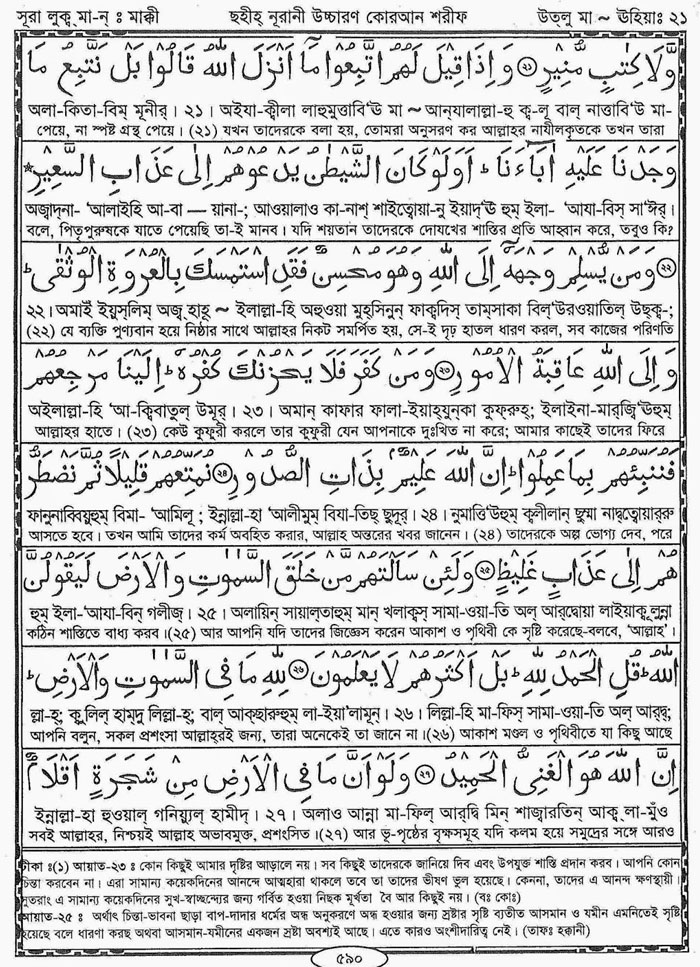 সূরা লুক্ব্‌মা-ন্ ঃ মাক্কী
ছহীহ্ নূরানী উচ্চারণ কোরআন শরীফ
উত্‌লু মা ~ ঊহিয়াঃ ২১
وَّلَا كِتٰبٍ مُّنِيْرٍ ۝۲۰ وَاِذَا قِيْلَ لَهُمُ اتَّبِعُوْا مَاۤ اَنْزَلَ اللّٰهُ قَالُوْا بَلْ نَتَّبِعُ مَا
অলা-কিতা-বিম্ মুনীর্। ২১। অইযা-ক্বীলা লাহুমুত্তাবি'ঊ মা ~ আন্‌যালাল্লা-হু ক্ব-লূ বাল্ নাত্তাবি'উ মা-
পেয়ে, না স্পষ্ট গ্রন্থ পেয়ে। (২১) যখন তাদেরকে বলা হয়, তোমরা অনুসরণ কর আল্লাহর নাযীলকৃতকে তখন তারা
وَجَدْنَا عَلَيْهِ اٰبَآءَنَا ؕ اَوَلَوْ كَانَ الشَّيْطٰنُ يَدْعُوْهُمْ اِلٰى عَذَابِ السَّعِيْرِ
অজ্বাদ্‌না- 'আলাইহি আ-বা — য়ানা-; আওয়ালাও কা-নাশ্ শাইত্বোয়া-নু ইয়াদ্'ঊ হুম্ ইলা- 'আযা-বিস্ সা'ঈর্।
বলে, পিতৃপুরুষকে যাতে পেয়েছি তা-ই মানব। যদি শয়তান তাদেরকে দোযখের শাস্তির প্রতি আহ্বান করে, তবুও কি?
۝۲۱ وَمَنْ يُّسْلِمْ وَجْهَهٗۤ اِلَى اللّٰهِ وَهُوَ مُحْسِنٌ فَقَدِ اسْتَمْسَكَ بِالْعُرْوَةِ الْوُثْقٰى ؕ
২২। অমাইঁ ইয়ুস্‌লিম্ অজ্ব্‌হাহূ ~ ইলাল্লা-হি অহুওয়া মুহ্‌সিনুন্ ফাক্বদিস্ তাম্‌সাকা বিল্'উরওয়াতিল্ উছ্‌ক্ব-;
(২২) যে ব্যক্তি পুণ্যবান হয়ে নিষ্ঠার সাথে আল্লাহর নিকট সমর্পিত হয়, সে-ই দৃঢ় হাতল ধারণ করল, সব কাজের পরিণতি
وَاِلَى اللّٰهِ عَاقِبَةُ الْاُمُوْرِ ۝۲۲ وَمَنْ كَفَرَ فَلَا يَحْزُنْكَ كُفْرُهٗ ؕ اِلَيْنَا مَرْجِعُهُمْ
অইলাল্লা-হি 'আ-ক্বিবাতুল্ উমূর্। ২৩। অমান্ কাফার ফালা-ইয়াহ্‌যুন্‌কা কুফ্‌রুহ্; ইলাইনা-মার্‌জ্বি'ঊহুম্
আল্লাহর হাতে। (২৩) কেউ কুফুরী করলে তার কুফুরী যেন আপনাকে দুঃখিত না করে; আমার কাছেই তাদের ফিরে
فَنُنَبِّئُهُمْ بِمَا عَمِلُوْا ؕ اِنَّ اللّٰهَ عَلِيْمٌۢ بِذَاتِ الصُّدُوْرِ ۝۲۳ نُمَتِّعُهُمْ قَلِيْلًا ثُمَّ نَضْطَرُّ
ফানুনাব্বিয়ুহুম্ বিমা- 'আমিলূ ; ইন্নাল্লা-হা 'আলীমুম্ বিযা-তিছ্ ছুদূর্। ২৪। নুমাত্তি'উহুম্ ক্বলীলান্ ছুম্মা নাদ্বত্বোয়ার্‌রু
আসতে হবে। তখন আমি তাদের কর্ম অবহিত করার, আল্লাহ অন্তরের খবর জানেন। (২৪) তাদেরকে অল্প ভোগ্য দেব, পরে
هُمْ اِلٰى عَذَابٍ غَلِيْظٍ ۝۲۴ وَلَئِنْ سَاَلْتَهُمْ مَّنْ خَلَقَ السَّمٰوٰتِ وَالْاَرْضَ لَيَقُوْلُنَّ
হুম্ ইলা-'আযা-বিন্ গলীজ্। ২৫। অলায়িন্ সায়াল্‌তাহুম্ মান্ খলাক্বস্ সামা-ওয়া-তি অল্ আর্‌দ্বোয়া লাইয়াক্বূলুন্না
কঠিন শাস্তিতে বাধ্য করব।(২৫) আর আপনি যদি তাদের জিজ্ঞেস করেন আকাশ ও পৃথিবী কে সৃষ্টি করেছে-বলবে, 'আল্লাহ'।
اللّٰهُ ؕ قُلِ الْحَمْدُ لِلّٰهِ ؕ بَلْ اَكْثَرُهُمْ لَا يَعْلَمُوْنَ ۝۲۵ لِلّٰهِ مَا فِى السَّمٰوٰتِ وَالْاَرْضِ ؕ
ল্লা-হ্; ক্বুলিল্ হাম্‌দু লিল্লা-হ্; বাল্ আক্‌ছারুহুম্ লা-ইয়া'লামূন্। ২৬। লিল্লা-হি মা-ফিস্ সামা-ওয়া-তি অল্ আর্‌দ্ব;
আপনি বলুন, সকল প্রশংসা আল্লাহ্‌রই জন্য, তারা অনেকেই তা জানে না।(২৬) আকাশ মণ্ডল ও পৃথিবীতে যা কিছু আছে
اِنَّ اللّٰهَ هُوَ الْغَنِىُّ الْحَمِيْدُ ۝۲۶ وَلَوْ اَنَّ مَا فِى الْاَرْضِ مِنْ شَجَرَةٍ اَقْلَامٌ
ইন্নাল্লা-হা হুওয়াল্ গনিয়্যুল্ হামীদ্। ২৭। অলাও আন্না মা-ফিল্ আর্‌দ্বি মিন্ শাজ্বারতিন্ আক্ব্‌লা-মুঁও
সবই আল্লাহর, নিশ্চয়ই আল্লাহ অভাবমুক্ত, প্রশংসিত।(২৭) আর ভূ-পৃষ্ঠের বৃক্ষসমূহ যদি কলম হয়ে সমুদ্রের সঙ্গে আরও
টীকা ঃ(১) আয়াত-২৩ ঃ কোন কিছুই আমার দৃষ্টির আড়ালে নয়। সব কিছুই তাদেরকে জানিয়ে দিব এবং উপযুক্ত শাস্তি প্রদান করব। আপনি কোন
চিন্তা করবেন না। এরা সামান্য কয়েকদিনের আনন্দে আত্মহারা থাকলে তবে তা তাদের ভীষণ ভুল হয়েছে। কেননা, তাদের এ আনন্দ ক্ষণস্থায়ী
সুতরাং এ সামান্য কয়েকদিনের সুখ-স্বাচ্ছন্দ্যের জন্য গর্বিত হওয়া নিছক মূর্খতা বৈ আর কিছুই নয়। (বঃ কোঃ)
আয়াত-২৫ ঃ অর্থাৎ চিন্তা-ভাবনা ছাড়া বাপ-দাদার ধর্মের অন্ধ অনুকরণে অন্ধ হওয়ার জন্য স্রষ্টার সৃষ্টি ব্যতীত আসমান ও যমীন এমনিতেই সৃষ্টি
হয়েছে বলে ধারণা করছ অথবা আসমান-যমীনের একজন স্রষ্টা অবশ্যই আছে। এতে কারও অংশীদারিত্ব নেই। (তাফঃ হক্কানী)
৫৯০